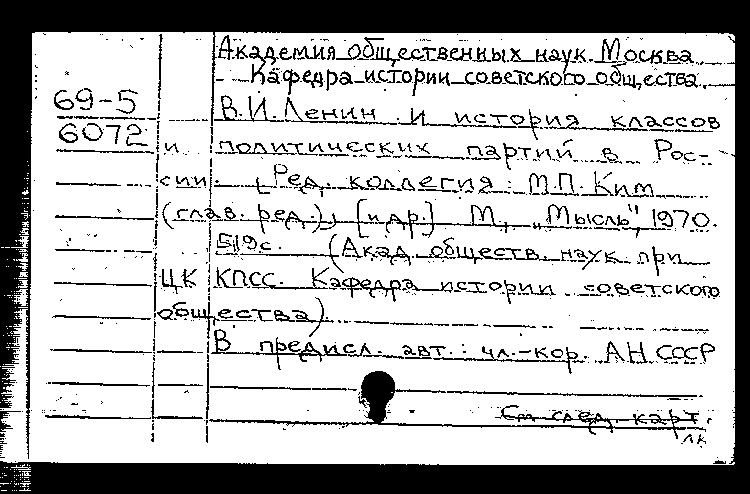 Академия общественных наук. Москва.
Кафедра истории советского общества.
69-5
В.И. Ленин и история классов
6072
и политических партий в Рос-
сии. [Ред. коллегия: М.П. Ким
(глав. ред.), [и др.] М., „Мысль", 1970.
519с. (Акад. обществ. наук при
ЦК КПСС. Кафедра истории советского
общества)
В предисл. авт.: чл.-кор. АН СССР
См след. карт.
лк